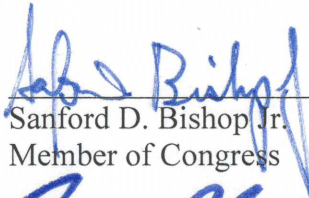 Sanford Bishop Jr
Sanford D. Bishop Jr.
Member of Congress